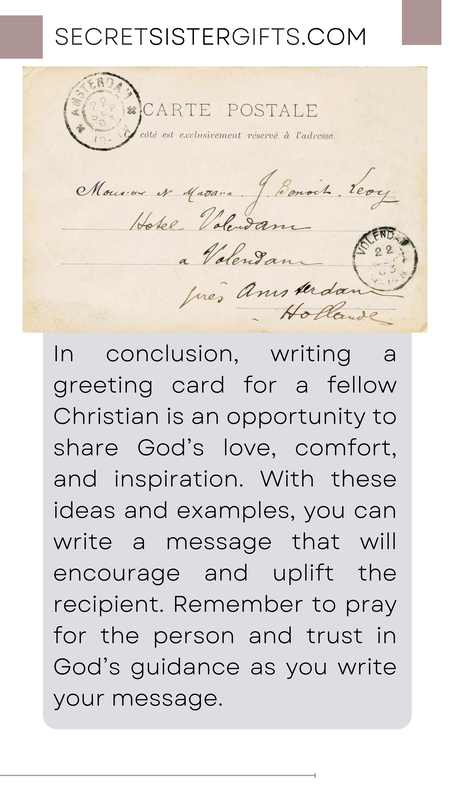 SECRETSISTERGIFTS.COM
AMSTERDAM
CARTE POSTALE
côté est exclusivement réservé à l'adresse
Monsieur et Madame J. Benoit. Levy
Hotel Volendam
a Volendam
VOLENDAM
22
près Amsterdam
Hollande
In conclusion, writing a
greeting card for a fellow
Christian is an opportunity to
share God's love, comfort,
and inspiration. With these
ideas and examples, you can
write a message that will
encourage and uplift the
recipient. Remember to pray
for the person and trust in
God's guidance as you write
your message.